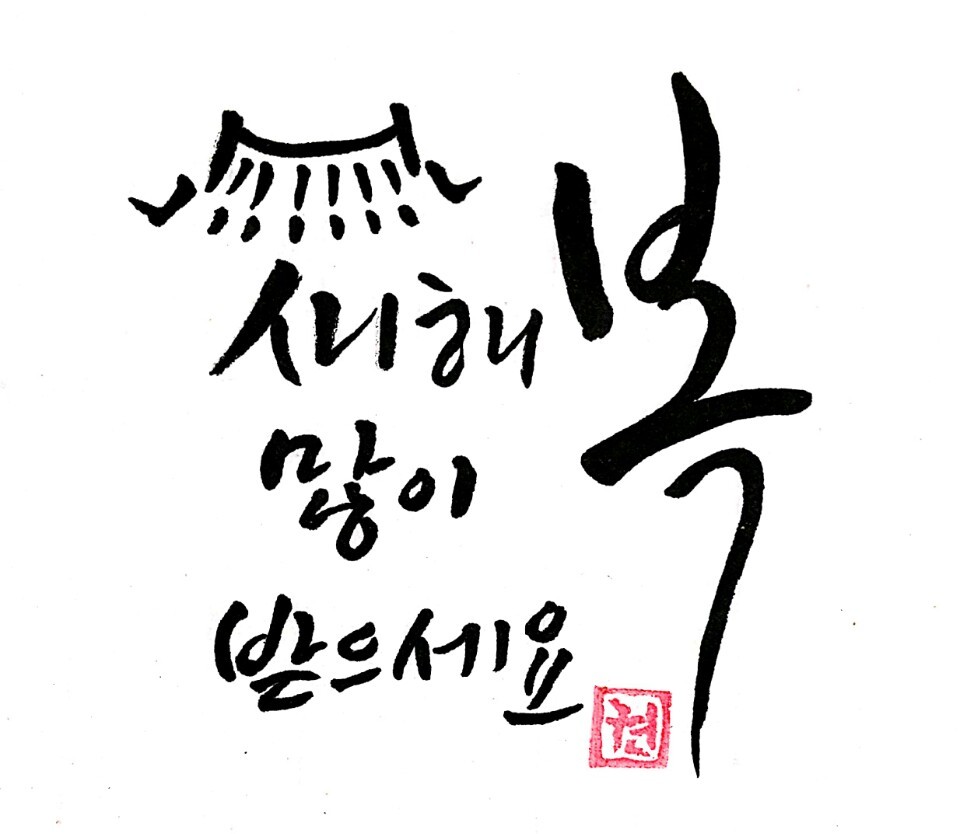 새해
복
많이
받으세요